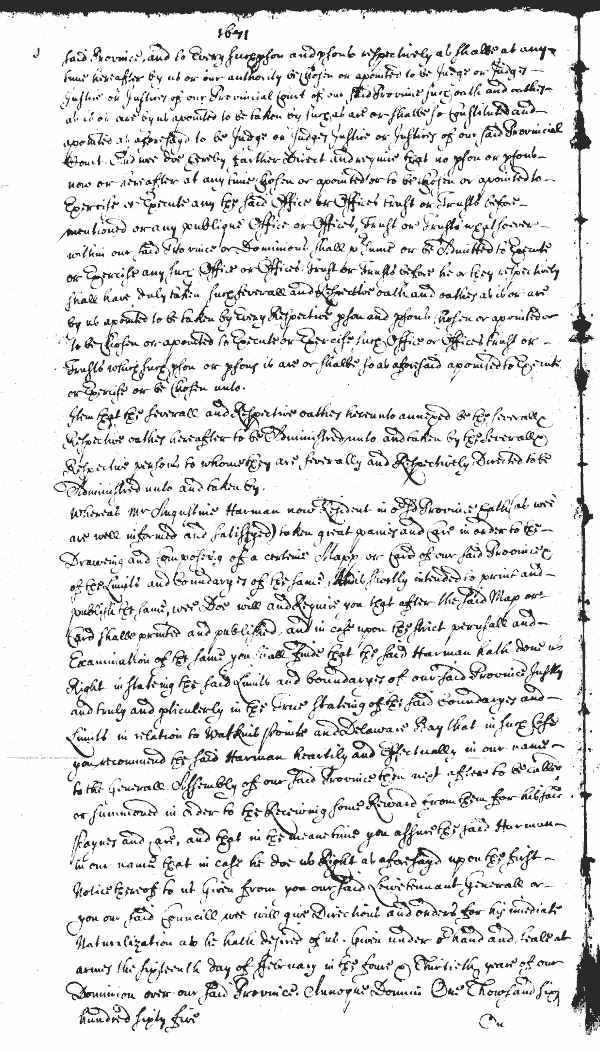 1671
said Province, and to Every such pson and psons respectively as shalbe at any
time hereafter by us or our authority be Chosen or apointed to be Judge or Judges
Justice or Justices of our Provincial Court of our said Province such oath and oathes
as is or are by us apointed to be taken by such as are or shalbe so Constituted and
apointed as aforesayd to be Judge or Judges Justice or Justices of our said Provincial
Court. And wee doe hereby further direct and require that no pson or psons
now or hereafter at any time Chosen or apointed or to be Chosen or apointed to
Exercise or Execute any the said Office or Offices trust or Trusts before
mentioned or any publique Office or Offices, Trust or Trusts whatsoever
within our said Province or Dominions shall psume or be Admitted to Execute
or Exercise any such Office or Offices trust or trusts before he or they respectively
shall have duly taken such severall and Respective oath and oathes as is or are
by us apointed to be taken by Every Respective pson and psons Chosen or apointed or
to be Chosen or apointed to Execute or Exercise such Office or Offices trust or
Trusts which such pson or psons is are or shalbe so as aforesaid apointed to Execute
or Exercise or be Chosen unto.
Item that the severall and Respective oathes hereunto annexed be the severall &
Respective oathes hereafter to be Administred unto and taken by the severall &
Respective persons to whome they are severally and Respectively Directed to be
Administred unto and taken by.
Whereas Mr Augustine Harman now Resident in or sd Province hath (as wee
are well informed and satisfyed) taken great paines and Care in order to the
Drawing and Composing of a certeine Mapp or Card of our said Province &
of the Limits and boundaryes of the same, And is shortly intended to print and
publish the same, wee Doe will and Require you that after the said Map or
Card shalbe printed and published, and in case upon the strict perusall and
Examination of the same you shall finde that the said Harman hath done us
Right in stateing the said Limits and boundaryes of our said Province Justly
and truly and pticulerly in the true stateing of the said boundaryes and
Limits in relation to Watkins Pointe and Delaware Bay that in such Case
you recommend the said Harman heartily and effectually in our name
to the Generall Assembly of our said Province then next after to be Called
or summoned in order to the Receiving some Reward from them for his said
Paynes and Care, and that in the meane time you assure the said Harman
in our name that in case he doe us Right as aforesayd upon the first
Notice thereof to us Given from you our said Leivetennant Generall or
you our said Councill wee will give Directions and orders for his imediate
Naturalization as he hath desired of us. Given under or hand and seale at
armes the sixteenth day of February in the foure & Thirtieth yeare of our
Dominion over our said Province. Annoque Domini One Thousand six
hundred sixty five
On